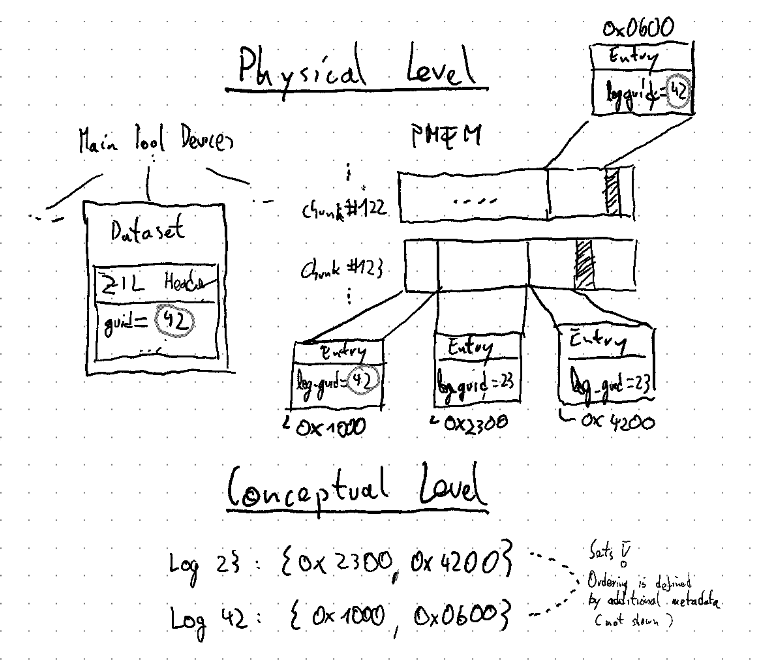 Physical Level
0x0600
Entry
log-guid=42
Main Pool Devices
PMEM
Dataset
ZIL Header
guid=42
...
Chunk #122
....
Chunk #123
Entry
log-guid=42
0x1000
Entry
log-guid=23
0x2300
Entry
log-guid=23
0x4200
Conceptual Level
Log 23: {0x2300, 0x4200}
Log 42: {0x1000, 0x0600}
Sets
Ordering is defined
by additional metadata
(not shown)